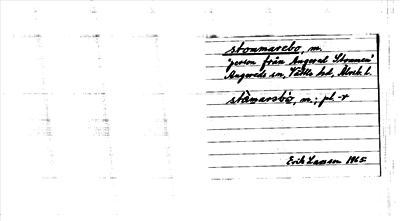 stommarebo, m.
"person från Angered Stommen"
Angereds sn, Vättle hd, Älvsb. l.
ståmarsbo, m.; pl -r
Erik Larsson 1965